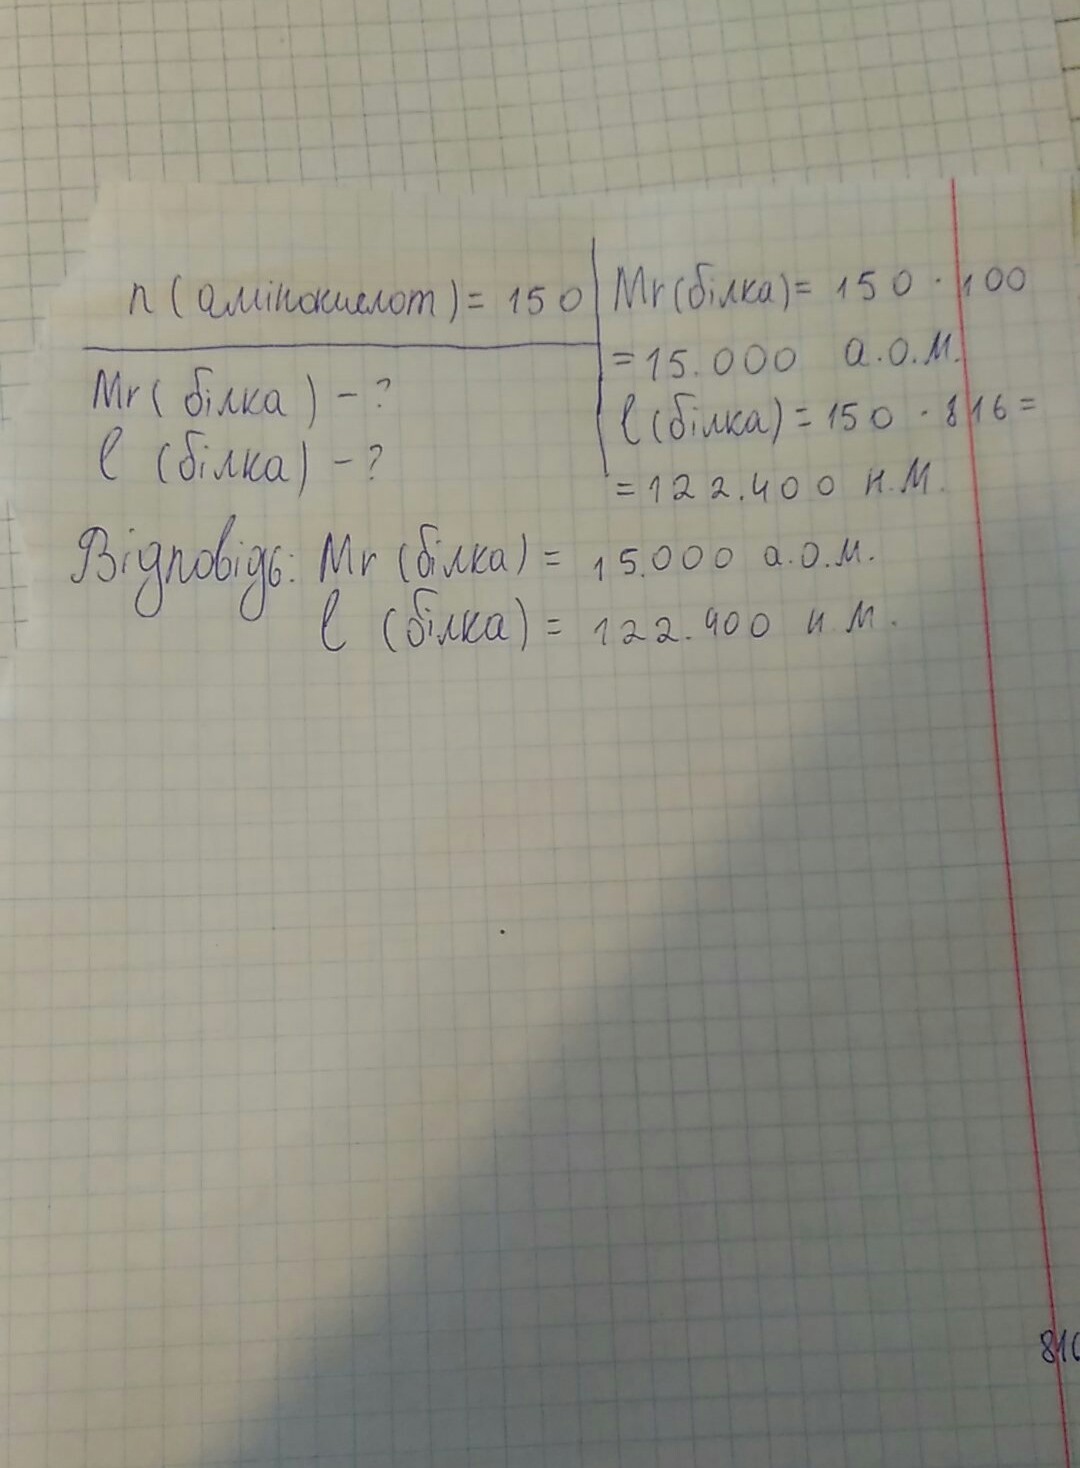 n (амінокислот) = 150
Mr ( білка ) - ?
l (білка) - ?
Mr (білка) = 150 · 100
= 15.000 а.о.м.
l (білка) = 150 · 816 =
= 122.400 н.м.
Відповідь: Mr (білка) = 15.000 а.о.м.
l (білка) = 122.400 н.м.